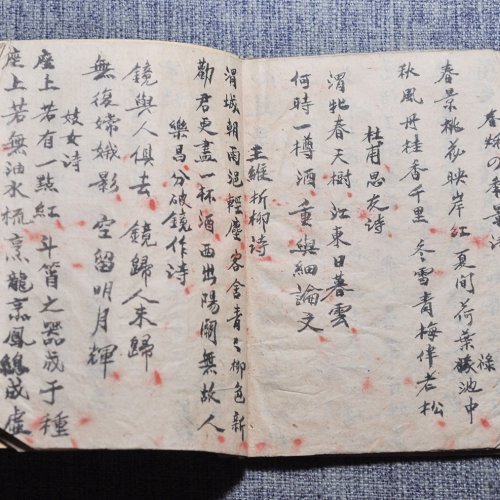 春景桃花映岸紅 夏間荷葉綠池中
秋風丹桂香千里 冬雪青梅伴老松
杜甫思友詩
渭北春天樹 江東日暮雲
何時一樽酒 重與細論文
王維折柳詩
渭城朝雨浥輕塵 客舍青々柳色新
勸君更盡一杯酒 西出陽關無故人
樂昌分破鏡作詩
鏡與人俱去 鏡歸人未歸
無復嫦娥影 空留明月輝
妓女詩
座上若有一點紅 斗筲之器成千種
座上若無油水梳 烹龍炰鳳總成虛